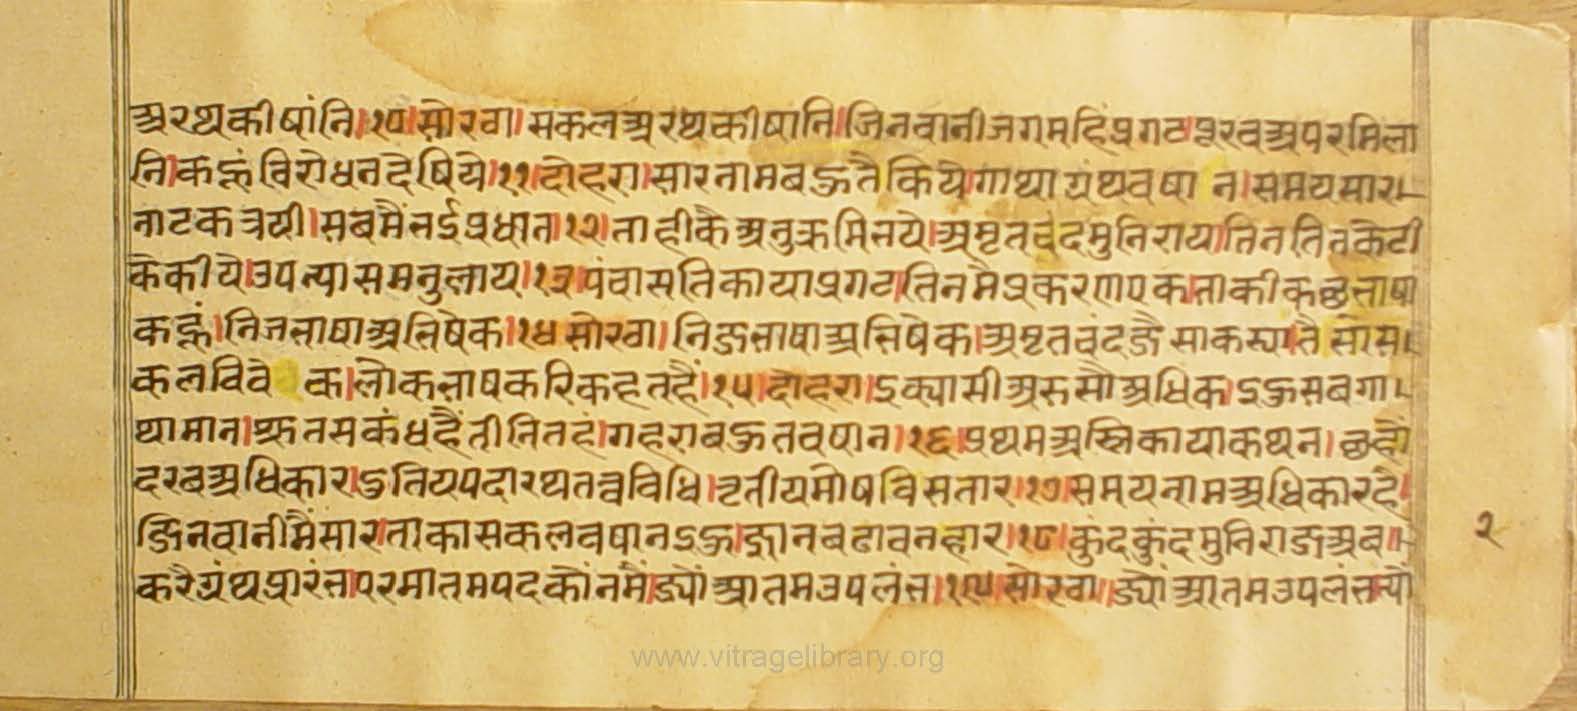 अरथकीषांनि।१०।सोरठा।सकलअरथकीषांनि।जिनवानीजगमहिंप्रगट।पूरवअपरमिला
नि।कहूंविरोधनदेषिये।११।दोहरा।सारनामबऊतैकिये।गाथाग्रंथवषान।समयसार।
नाटकत्रयी।सबमैंनईप्रधान।१२।ताहीकैअनुक्रमिनये।अमृतचंदमुनिराय।तिनतिनकेटी
केकीये।उपन्यासमनुलाय।१३।पंचासतिकायाप्रगट।तिनमैप्रकरणएक।ताकीकछुभाषा
कहूं।निजभाषाअभिषेक।१४।सोरठा।निजभाषाअभिषेक।अमृतचंदजैसाकस्या।तैसोस।
कलविवेक।लोकभाषकरिकहतहैं।१५।दोहरा।इक्यासीअरुसौअधिक।इऊसबगा।
थामान।श्रुतसकंधहैंतीनितहं।गहराबऊतवषान।१६।प्रथमअस्तिकायाकथन।छहों
दरवअधिकार।दुतियपदारथतत्वविधि।तृतीयमोषविसतार।१७।समयनामअधिकारहै।
जिनवानीमैंसार।ताकासकलवषानइऊ।ज्ञानबढावनहार।१८।कुंदकुंदमुनिराजअब॥
करैग्रंथप्रारंभ।परमातमपदकौंनमैं।ज्यौंआतमउपलंभ।१९।सोरठा।ज्यौंआतमउपलंभत्यौं
२
www.vitragelibrary.org